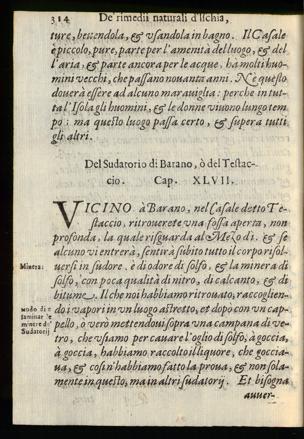 314 De' rimedii naturali d'Ischia,
ture, bevendola, & usandola in bagno. Il Casale
è piccolo, pure, parte per l'amenità del luogo, & del
l'aria, & parte ancora per le acque, ha molti huo-
mini vecchi, che passano novanta anni. N'è questo
doverà essere ad alcuno maraviglia: perche in tut-
ta l'Isola gli huomini, & le donne vivono lungo tem
po: ma questo luogo passa certo, & supera tutti
gli altri.
Del Sudatorio di Barano, ò del Testac-
cio. Cap. XLVII.
VICINO à Barano, nel Casale detto Te-
staccio, ritroverete una fossa aperta, non
profonda, la quale risguarda al Mezo di. & se
alcuno vi entrerà, sentirà subito tutto il corpo risol-
versi in sudore. è di odore di solfo, & la minera di
Minera:
solfo, con poca qualità di nitro, di calcanto, & di
bitume. Il che noi habbiamo ritrouato, raccoglien-
do i vapori in un luogo astretto, et dopò con un cap-
pello, ò verò mettendovi sopra una campana di ve-
tro, che usiamo per cavare l'oglio di solfo, à goccia,
à goccia, habbiamo raccolto il liquore, che goccia-
va, & cosi n'habbiamo fatto la prova, & non sola-
mente in questo, ma in altri sudatorij. Et bisogna
Modo di e
saminar le
minere de'
Sudatorij
avver-